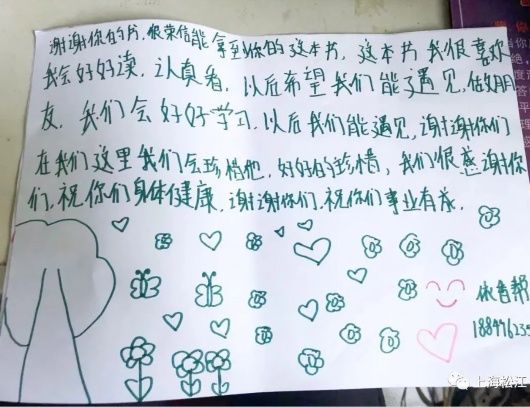 谢谢你们的书,很荣信能拿到你们的这本书,这本书我很喜欢
我会好好读,认真看,以后希望我们能遇见,做朋
友,我们会好好学习,以后我们能遇见,谢谢你们
在我们这里我们会珍惜他,好好的珍惜,我们很感谢你
们,祝你们身体健康,谢谢你们,祝你们事业有成,
上海松江